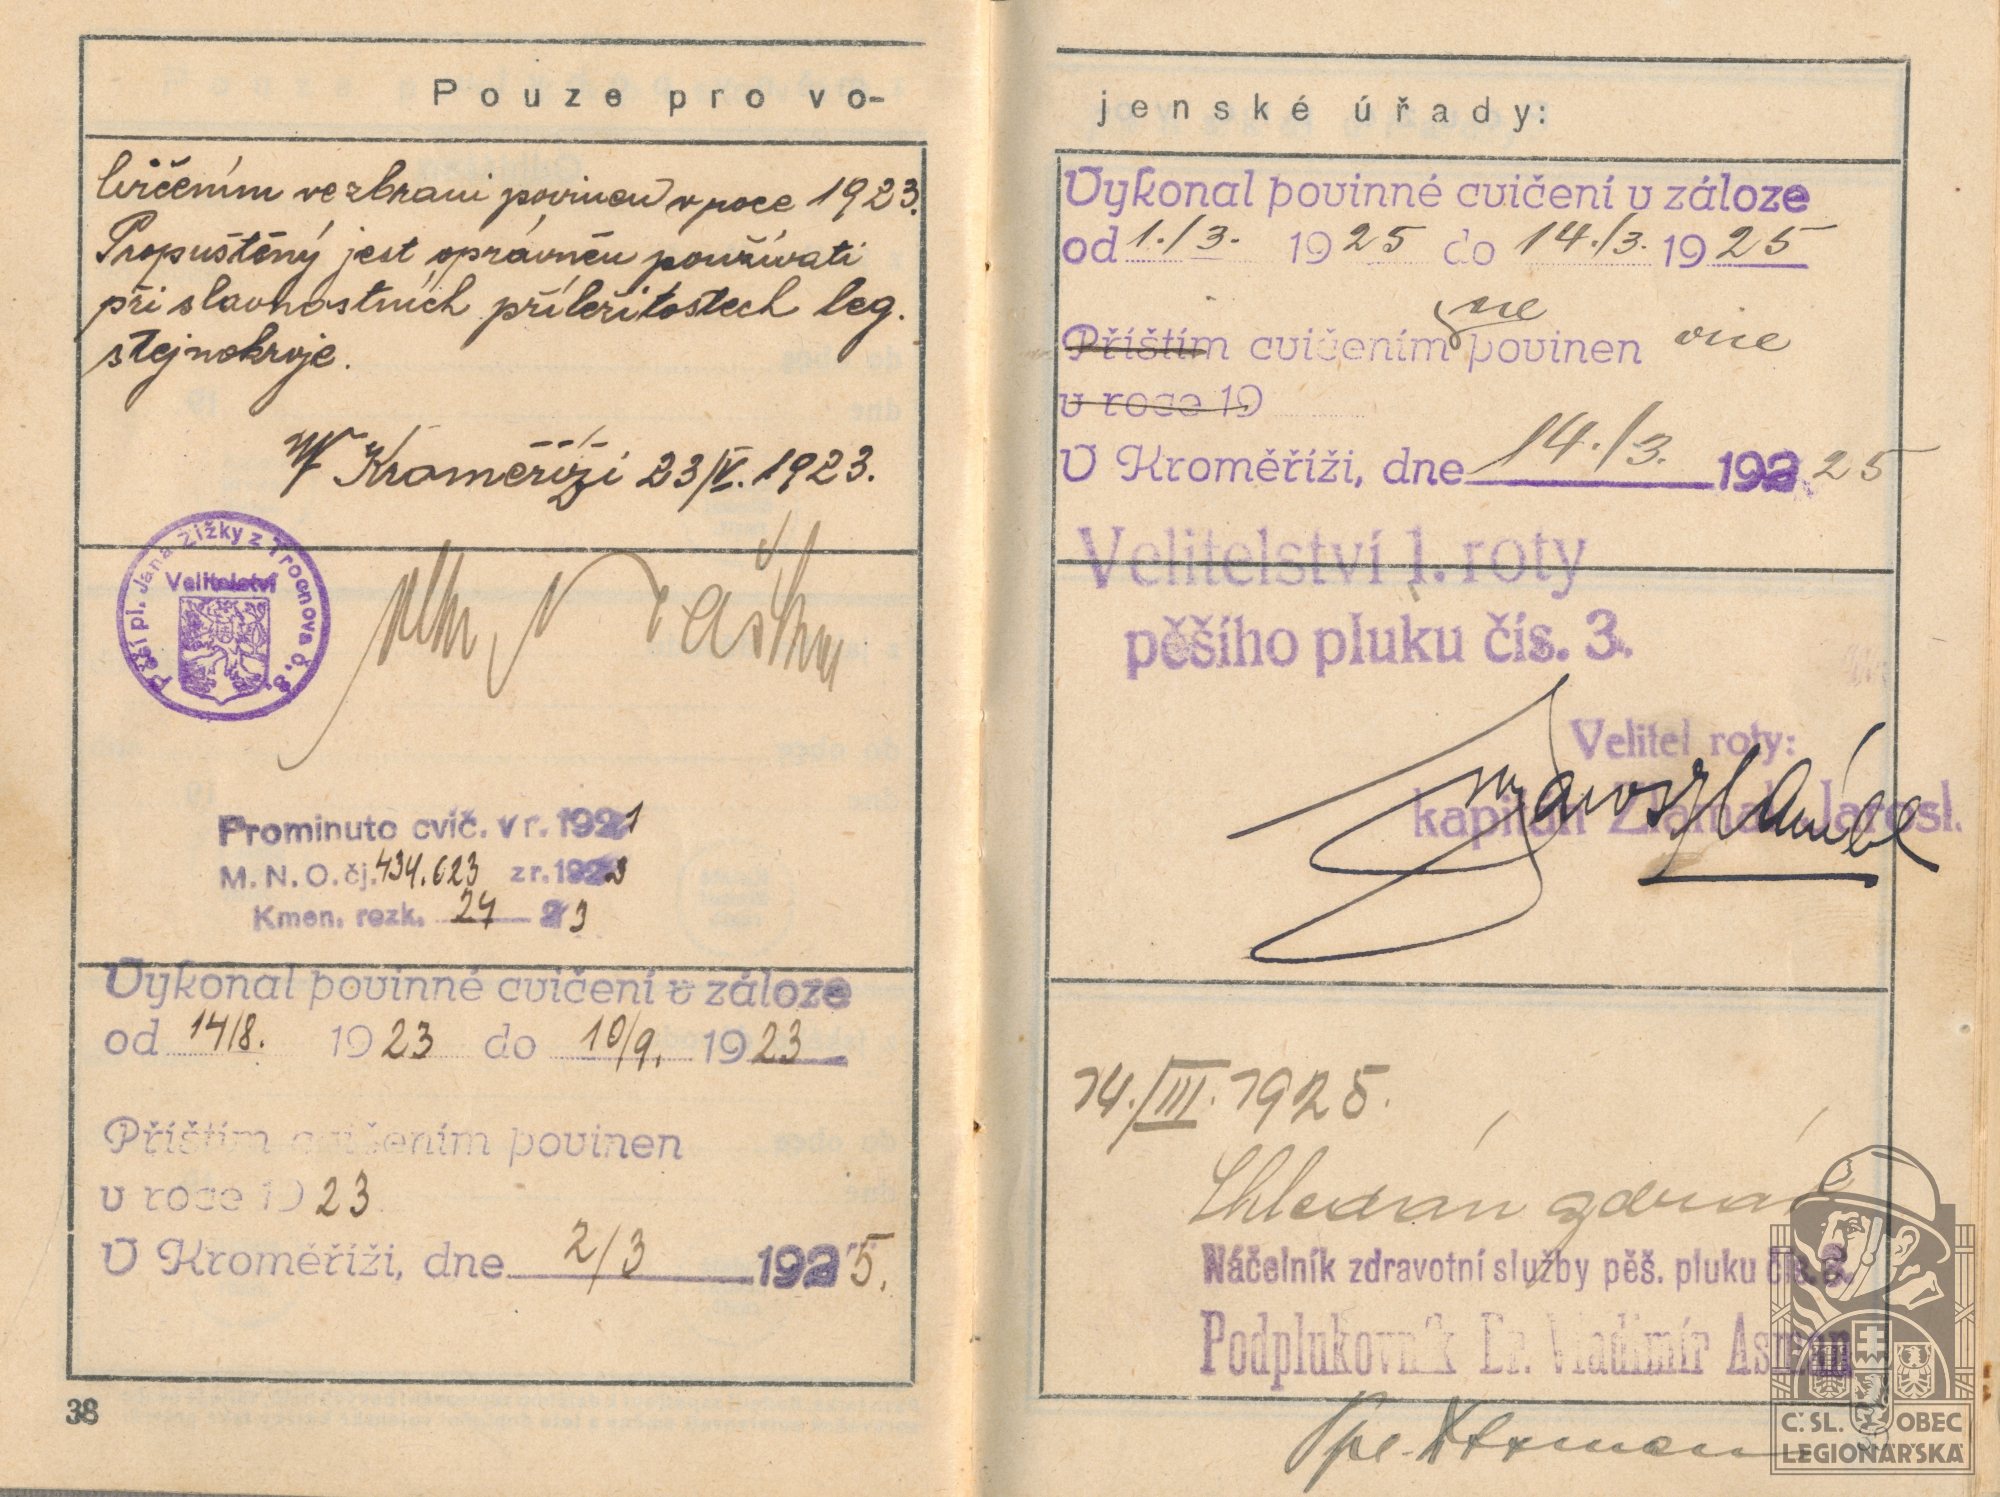 Pouze pro vo-
Cvičením ve zbrani povinen v roce 1923.
Propuštěný jest oprávněn používati
při slavnostních příležitostech leg.
stejnokroje.
V Kroměříži 23/V. 1923.
Pěší pl. Jana Žižky z Trocnova č. 3.
Velitelství
Prominuto cvič. v r. 1921
M. N. O. čj. 434.623 z r. 1923
Kmen. rozk. 24 23
Vykonal povinné cvičení v záloze
od 14/8. 1923 do 10/9. 1923
Příštím cvičením povinen
v roce 1923
V Kroměříži, dne 2/3 1925.
38
jenské úřady:
Vykonal povinné cvičení v záloze
od 1./3. 1925 do 14./3. 1925
Příštím cvičením ne povinen více
v roce 19
V Kroměříži, dne 14./3. 192 25
Velitelství 1. roty
pěšího pluku čís. 3.
Velitel roty:
kapitán Zlámal Jarosl.
14./III. 1925.
Shledán zdráv
Náčelník zdravotní služby pěš. pluku čís. 3.
Podplukovník Dr. Vladimír Asman
ČSL. OBEC
LEGIONÁŘSKÁ